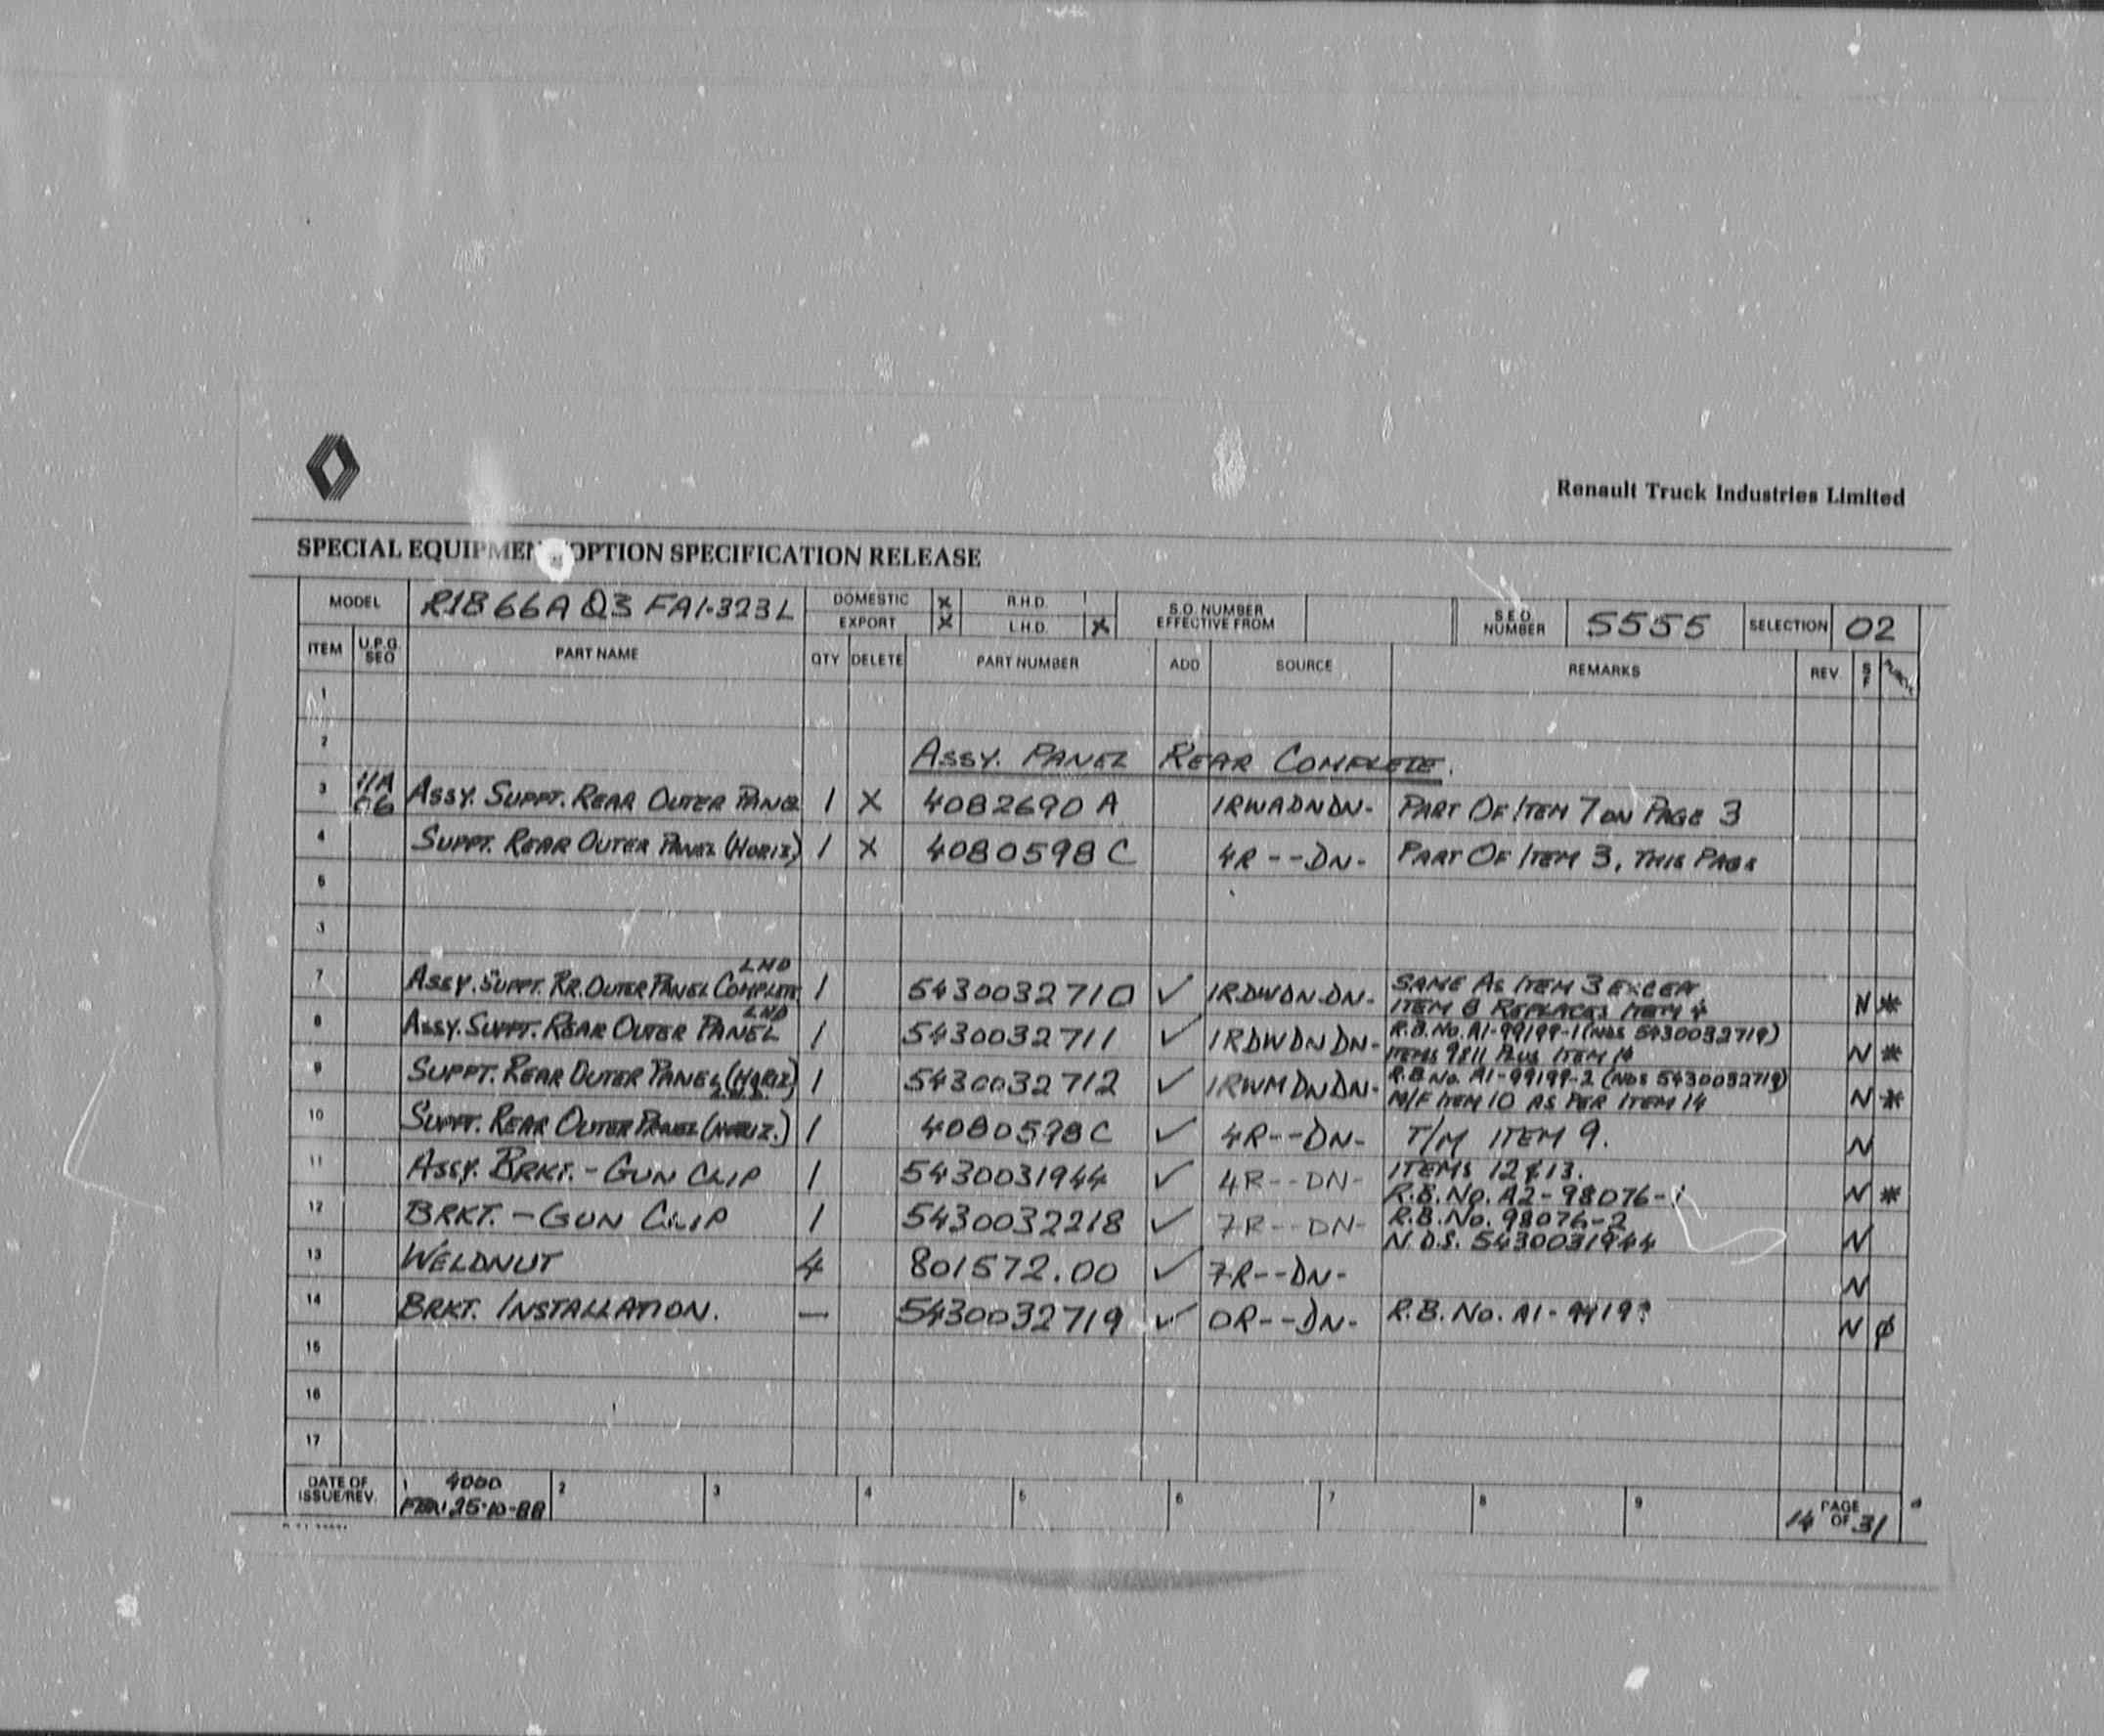 Renault Truck Industries Limited
SPECIAL EQUIPMEN OPTION SPECIFICATION RELEASE
MODEL R1B66A Q3 FA1.323L DOMESTIC X R.H.D. S.O. NUMBER EFFECTIVE FROM S.E.O. NUMBER 5555 SELECTION 02
EXPORT X L.H.D. X
ITEM U.P.G. SEQ PART NAME QTY DELETE PART NUMBER ADD SOURCE REMARKS REV S F
1
2 ASSY. PANEL REAR COMPLETE.
3 11A 06 ASSY. SUPPT. REAR OUTER PANEL 1 X 4082690 A 1RWADNDN- PART OF ITEM 7 ON PAGE 3
4 SUPPT. REAR OUTER PANEL (HORIZ.) 1 X 4080598 C 4R--DN- PART OF ITEM 3, THIS PAGE
5
6
7 ASSY. SUPPT. RR. OUTER PANEL COMPLETE LHD 1 5430032710 ✓ 1RDWDN-DN- SAME AS ITEM 3 EXCEPT
ITEM 8 REPLACES ITEM 4 N *
8 ASSY. SUPPT. REAR OUTER PANEL LHD 1 5430032711 ✓ 1RDWDNDN- R.B. No. A1-99199-1 (NDS 5430032719)
ITEMS 9 & 11 PLUS ITEM 14 N *
9 SUPPT. REAR OUTER PANEL (HORIZ.) L.H.D. 1 5430032712 ✓ 1RWMDNDN- R.B. No. A1-99199-2 (NDS 5430032719)
M/F ITEM 10 AS PER ITEM 14 N *
10 SUPPT. REAR OUTER PANEL (HORIZ.) 1 4080598C ✓ 4R--DN- T/M ITEM 9. N
11 ASSY. BRKT. - GUN CLIP 1 5430031944 ✓ 4R--DN- ITEMS 12 & 13.
R.B. No. A2-98076-1 N *
12 BRKT. - GUN CLIP 1 5430032218 ✓ 7R--DN- R.B. No. 98076-2
N.D.S. 5430031944 N
13 WELDNUT 4 801572.00 ✓ 7R--DN- N
14 BRKT. INSTALLATION. — 5430032719 ✓ 0R--DN- R.B. No. A1-99199 N ϕ
15
16
17
DATE OF ISSUE/REV. 1 4000 25-10-88 2 3 4 5 6 7 8 9 PAGE 14 OF 31